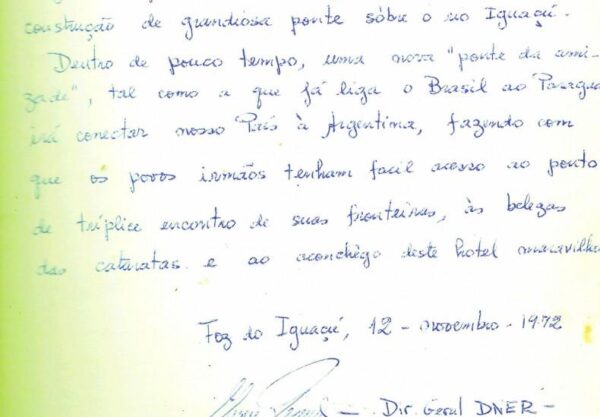 construção de grandiosa ponte sôbre o rio Iguaçú.
Dentro de pouco tempo, uma nova "ponte da ami-
zade", tal como a que já liga o Brasil ao Paragua
irá conectar nosso País à Argentina, fazendo com
que os povos irmãos tenham facil acesso ao ponto
de tríplice encontro de suas fronteiras, às belezas
das cataratas e ao aconchêgo deste hotel maravilho
Foz do Iguaçú, 12 - novembro - 1972
- Dir. Geral DNER -